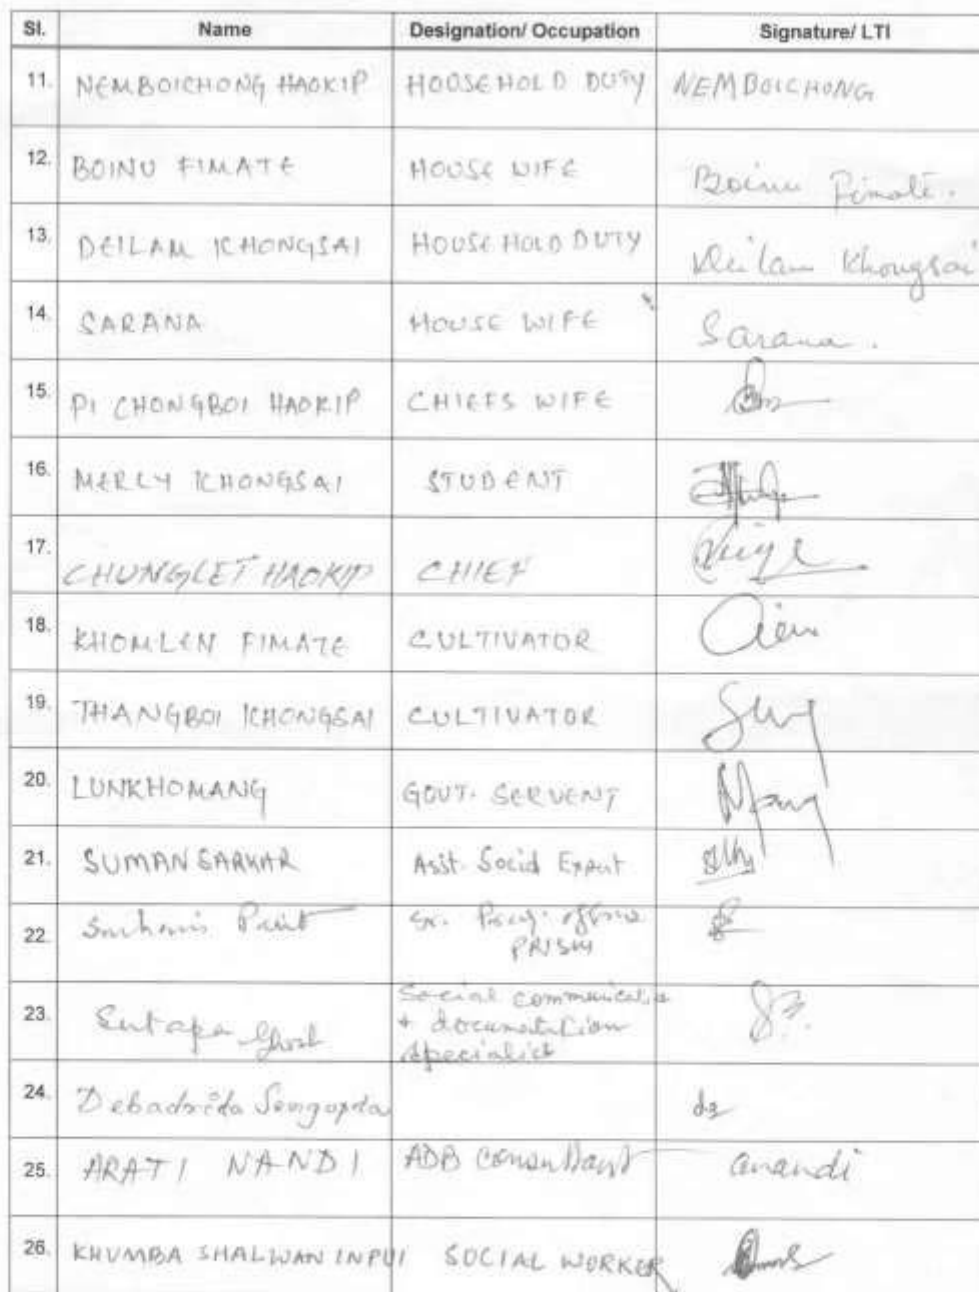 Sl. Name Designation/ Occupation Signature/ LTI
11. NEMBOICHONG HAOKIP HOUSEHOLD DUTY NEMBOICHONG
12. BOINU FIMATE HOUSE WIFE Boinu Fimate.
13. DEILAM KHONGSAI HOUSEHOLD DUTY Deilam Khongsai
14. SARANA HOUSE WIFE Sarana.
15. PI CHONGBOI HAOKIP CHIEFS WIFE
16. MERCY KHONGSAI STUDENT
17. CHUNGLET HAOKIP CHIEF
18. KHOMLEN FIMATE CULTIVATOR
19. THANGBOI KHONGSAI CULTIVATOR
20. LUNKHOMANG GOVT. SERVENT
21. SUMAN SARKAR Asst. Social Expert
22. Sr. Prog. officer
PRISM
23. Sutapa Ghosh Social communication
+ documentation
specialist
24. Debadrita Sengupta
25. ARATI NANDI ADB Consultant anandi
26. KHUMBA SHALWAN INPUI SOCIAL WORKER